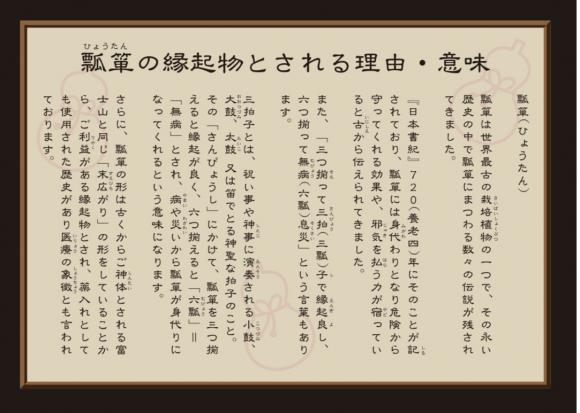 瓢箪の縁起物とされる理由・意味
瓢箪(ひょうたん)
瓢箪は世界最古の栽培植物の一つで、その永い
歴史の中で瓢箪にまつわる数々の伝説が残され
てきました。
『日本書紀』720(養老四)年にそのことが記
されており、瓢箪には身代わりとなり危険から
守ってくれる効果や、邪気を払う力が宿ってい
ると古から伝えられてきました。
また、「三つ揃って三拍(三瓢)子で縁起良し、
六つ揃って無病(六瓢)息災」という言葉もあり
ます。
三拍子とは、祝い事や神事に演奏される小鼓、
大鼓、太鼓 又は笛でとる神聖な拍子のこと。
その「さんびょうし」にかけて、瓢箪を三つ揃
えると縁起が良く、六つ揃えると「六瓢」=
「無病」とされ、病や災いから瓢箪が身代りに
なってくれるという意味になります。
さらに、瓢箪の形は古くからご神体とされる富
士山と同じ「末広がり」の形をしていることか
ら、ご利益がある縁起物とされ、薬入れとして
も使用された歴史があり医療の象徴とも言われ
ております。